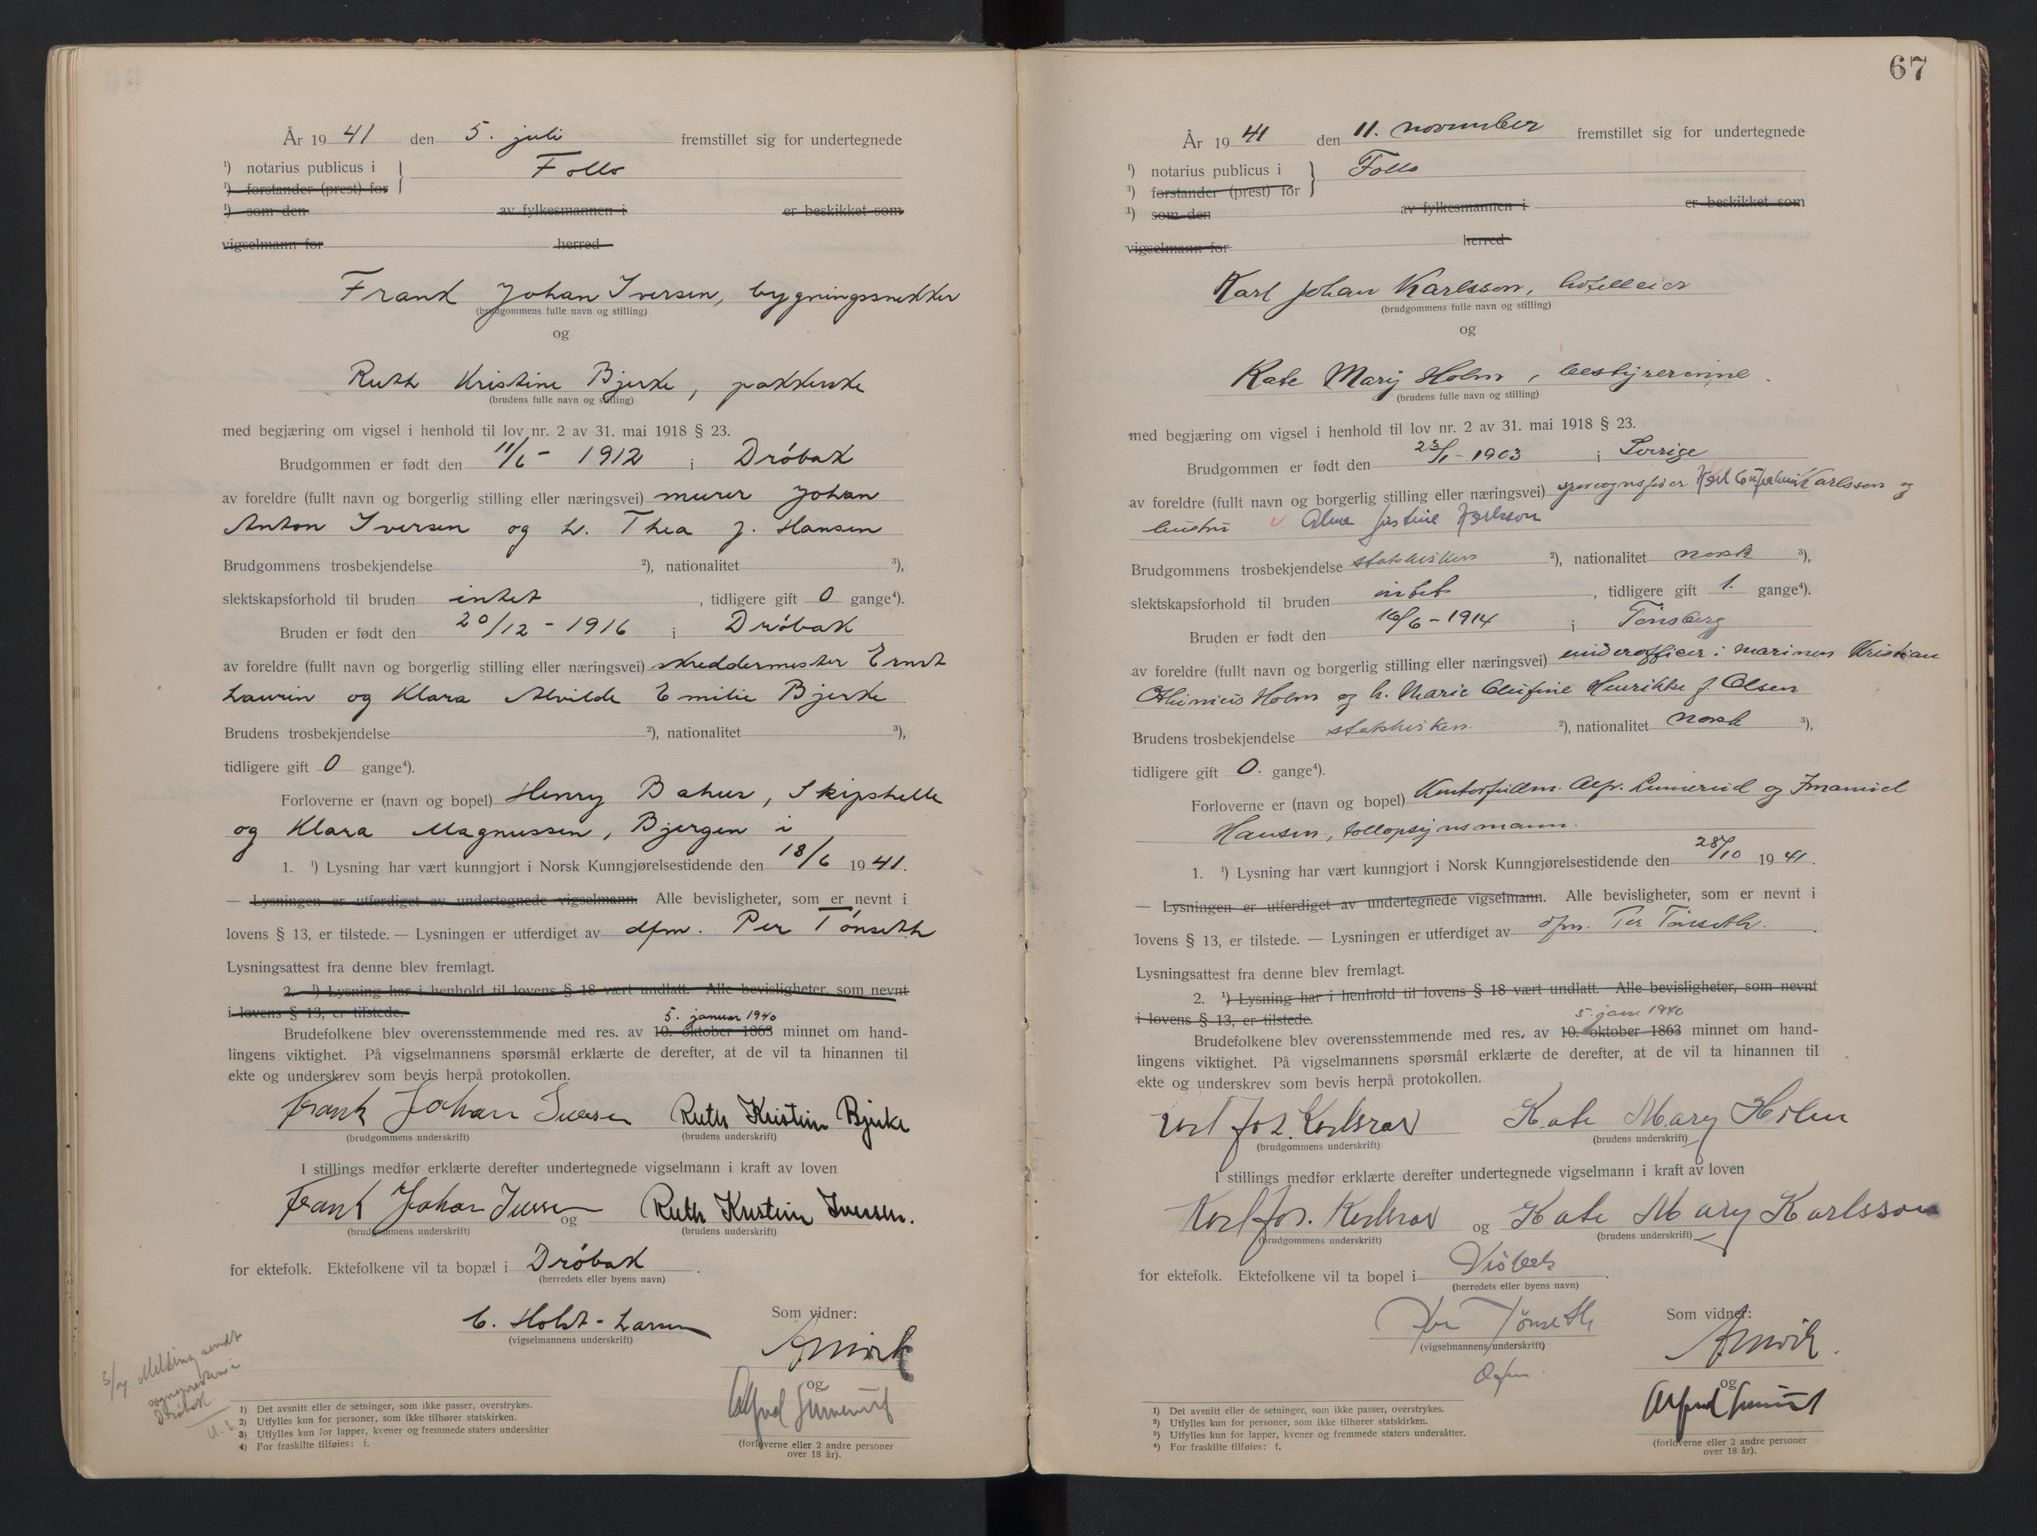 År 1941 den 5. juli fremstillet sig for undertegnede
¹) notarius publicus i } Follo
¹) forstander (prest) for
¹) som den av fylkesmannen i er beskikket som
vigselmann for herred
Frank Johan Iversen, bygningssnekker
(brudgommens fulle navn og stilling)
og
Ruth Kristine Bjerke, pakkerske
(brudens fulle navn og stilling)
med begjæring om vigsel i henhold til lov nr. 2 av 31. mai 1918 § 23.
Brudgommen er født den 11/6 - 1912 i Drøbak
av foreldre (fullt navn og borgerlig stilling eller næringsvei) murer Johan
Anton Iversen og h. Thea f. Hansen
Brudgommens trosbekjendelse ²), nationalitet ³),
slektskapsforhold til bruden intet, tidligere gift 0 gange⁴).
Bruden er født den 20/12 - 1916 i Drøbak
av foreldre (fullt navn og borgerlig stilling eller næringsvei) skreddermester Ernst
Laurin og Klara Alvilde Emilie Bjerke
Brudens trosbekjendelse ²), nationalitet ³),
tidligere gift 0 gange⁴).
Forloverne er (navn og bopel) Henry Bahus, Skiphelle
og Klara Magnussen, Bjergen i
1. ¹) Lysning har vært kunngjort i Norsk Kunngjørelsestidende den 18/6 1941.
— Lysningen er utferdiget av undertegnede vigselmann. Alle bevisligheter, som er nevnt i
lovens § 13, er tilstede. — Lysningen er utferdiget av dfm. Per Tønseth
Lysningsattest fra denne blev fremlagt.
2. ¹) Lysning har i henhold til lovens § 18 vært undlatt. Alle bevisligheter, som nevnt
i lovens § 13, er tilstede.
5. januar 1940
Brudefolkene blev overensstemmende med res. av 10. oktober 1863 minnet om hand-
lingens viktighet. På vigselmannens spørsmål erklærte de derefter, at de vil ta hinannen til
ekte og underskrev som bevis herpå protokollen.
Frank Johan Iversen Ruth Kristine Bjerke
(brudgommens underskrift) (brudens underskrift)
I stillings medfør erklærte derefter undertegnede vigselmann i kraft av loven
Frank Johan Iversen og Ruth Kristine Iversen.
(brudgommens underskrift) (brudens underskrift)
for ektefolk. Ektefolkene vil ta bopæl i Drøbak.
(herredets eller byens navn)
C. Holst-Larsen
(vigselmannens underskrift)
Som vidner:
og
Alfred
(forloverne eller 2 andre personer
over 18 år).
5/7 Melding sendt
sognepresten i
Drøbak
1) Det avsnitt eller de setninger, som ikke passer, overstrykes.
2) Utfylles kun for personer, som ikke tilhører statskirken.
3) Utfylles kun for lapper, kvener og fremmede staters undersåtter
4) For fraskilte tilføies: f.
67
År 1941 den 11. november fremstillet sig for undertegnede
¹) notarius publicus i } Follo
¹) forstander (prest) for
¹) som den av fylkesmannen i er beskikket som
vigselmann for herred
Karl Johan Karlsson, hotelleier
(brudgommens fulle navn og stilling)
og
Kate Mary Holm, bestyrerinne.
(brudens fulle navn og stilling)
med begjæring om vigsel i henhold til lov nr. 2 av 31. mai 1918 § 23.
Brudgommen er født den 23/1 - 1903 i Sverige
av foreldre (fullt navn og borgerlig stilling eller næringsvei) Karl Karlsson og
hustru Alma Justine Karlsson
Brudgommens trosbekjendelse statskirken ²), nationalitet norsk ³),
slektskapsforhold til bruden intet, tidligere gift 1. gange⁴).
Bruden er født den 16/6 - 1914 i Tønsberg
av foreldre (fullt navn og borgerlig stilling eller næringsvei) underofficer i marinen Kristian
Holm og h. Marie Henrikke f. Olsen
Brudens trosbekjendelse statskirken. ²), nationalitet norsk ³),
tidligere gift 0. gange⁴).
Forloverne er (navn og bopel) Kontorfullm. Alfr. og Imanuel
Hansen, tollopsynsmann.
1. ¹) Lysning har vært kunngjort i Norsk Kunngjørelsestidende den 28/10 1941.
— Lysningen er utferdiget av undertegnede vigselmann. Alle bevisligheter, som er nevnt i
lovens § 13, er tilstede. — Lysningen er utferdiget av dfm. Per Tønseth.
Lysningsattest fra denne blev fremlagt.
2. ¹) Lysning har i henhold til lovens § 18 vært undlatt. Alle bevisligheter, som nevnt
i lovens § 13, er tilstede.
5. jan. 1940
Brudefolkene blev overensstemmende med res. av 10. oktober 1863 minnet om hand-
lingens viktighet. På vigselmannens spørsmål erklærte de derefter, at de vil ta hinannen til
ekte og underskrev som bevis herpå protokollen.
Karl Joh. Karlsson Kate Mary Holm
(brudgommens underskrift) (brudens underskrift)
I stillings medfør erklærte derefter undertegnede vigselmann i kraft av loven
Karl Joh. Karlsson og Kate Mary Karlsson
(brudgommens underskrift) (brudens underskrift)
for ektefolk. Ektefolkene vil ta bopel i Drøbak.
(herredets eller byens navn)
Per Tønseth
(vigselmannens underskrift)
dfm.
Som vidner:
og
Alfred
(forloverne eller 2 andre personer
over 18 år).
1) Det avsnitt eller de setninger, som ikke passer, overstrykes.
2) Utfylles kun for personer, som ikke tilhører statskirken.
3) Utfylles kun for lapper, kvener og fremmede staters undersåtter.
4) For fraskilte tilføies: f.